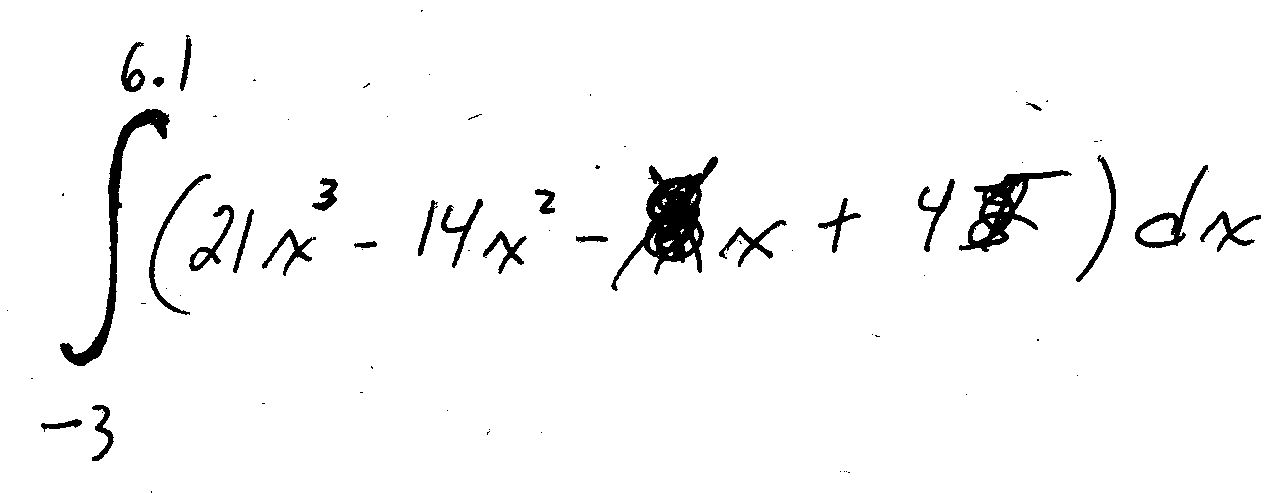 6.1
∫ (21x³ - 14x² - x + 4 ) dx
-3